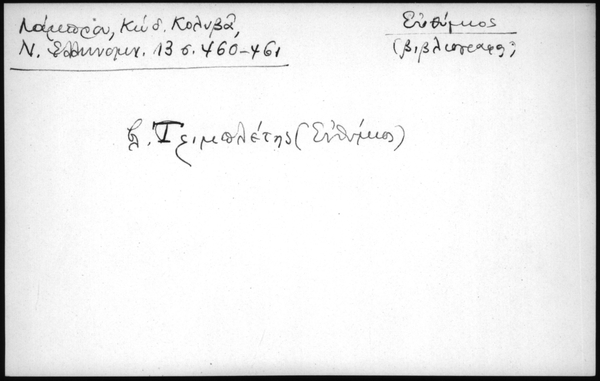 Λάμπρου, Κώδ. Κολυβᾶ,
Ν. Ἑλληνομν. 13 σ. 460-461
Εὐθύμιος
(βιβλιογράφος)
βλ. Τριμπλέτης (Εὐθύμιος)